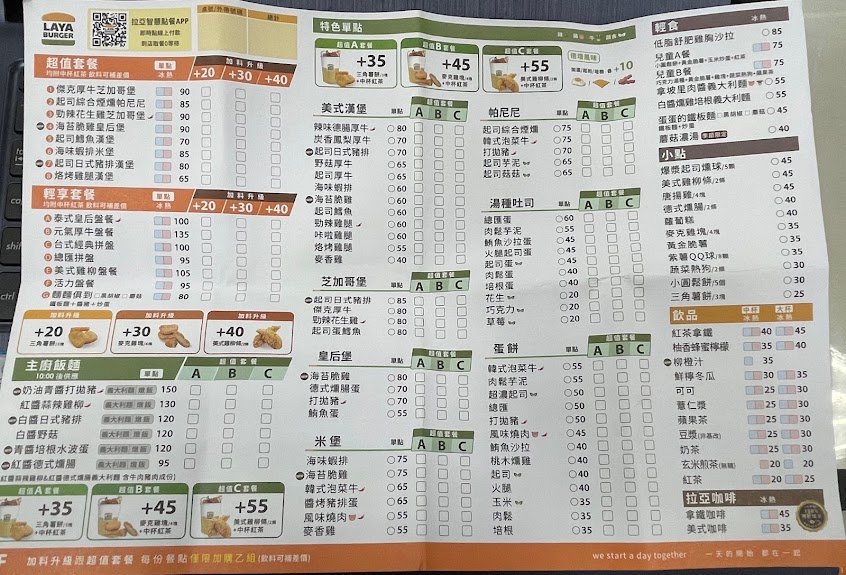 LAYA
BURGER
拉亞智慧點餐APP
即時點線上付款
到店取餐0等待
桌號/外帶號碼
總計
超值套餐
均附中杯紅茶 飲料可補差價
單點
冰 熱
加料升級
+20 +30 +40
1 傑克厚牛芝加哥堡 90
2 起司綜合煙燻帕尼尼 85
3 勁辣花生雞芝加哥堡 90
4 海苔脆雞皇后堡 90
5 起司鱈魚漢堡 70
6 海味蝦排米堡 85
7 起司日式豬排漢堡 80
8 烙烤雞腿漢堡 65
輕享套餐
均附中杯紅茶 飲料可補差價
單點
冰 熱
加料升級
+20 +30 +40
A 泰式皇后盤餐 100
B 元氣厚牛盤餐 135
C 台式經典拼盤 100
D 總匯拼盤 105
E 美式雞柳盤餐 105
F 活力盤餐 95
G 麵麵俱到 □黑胡椒 □蘑菇 80
鐵板麵+醬豬+炒蛋
加料升級
+20
三角薯餅/1塊
加料升級
+30
麥克雞塊/4塊
加料升級
+40
美式雞柳條/2條
主廚飯麵
10:00 後供應
單點
超值套餐
A B C
奶油青醬打拋豬 義大利麵 燉飯 150
紅醬蒜辣雞柳 義大利麵 燉飯 130
白醬日式豬排 義大利麵 燉飯 120
白醬野菇 義大利麵 燉飯 120
青醬培根水波蛋 義大利麵 燉飯 120
紅醬德式燻腸 義大利麵 燉飯 95
(紅醬蒜辣雞柳&紅醬德式燻腸義大利麵 含牛肉豬肉成份)
超值A套餐
+35
三角薯餅/1塊
+中杯紅茶
超值B套餐
+45
麥克雞塊/4塊
+中杯紅茶
超值C套餐
+55
美式雞柳條/2條
+中杯紅茶
加料升級跟超值套餐 每份餐點僅限加購乙組(飲料可補差價)
特色單點
超值A套餐
+35
三角薯餅/1塊
+中杯紅茶
超值B套餐
+45
麥克雞塊/4塊
+中杯紅茶
超值C套餐
+55
美式雞柳條/2條
+中杯紅茶
+10
美式漢堡
單點
超值套餐
A B C
辣味德腸厚牛 80
炭香鳳梨厚牛 70
起司日式豬排 70
野菇厚牛 65
起司厚牛 65
海味蝦排 60
海苔脆雞 60
起司鱈魚 60
勁辣雞腿 60
咔啦雞腿 60
烙烤雞腿 55
麥香雞 40
芝加哥堡
單點
超值套餐
A B C
起司日式豬排 85
傑克厚牛 80
勁辣花生雞 80
起司蛋鱈魚 80
皇后堡
單點
超值套餐
A B C
海苔脆雞 80
德式燻腸蛋 70
打拋豬 70
鮪魚蛋 55
米堡
單點
超值套餐
A B C
海味蝦排 75
海苔脆雞 75
韓式泡菜牛 65
醬烤豬排蛋 65
風味燒肉 55
麥香雞 55
帕尼尼
單點
超值套餐
A B C
起司綜合煙燻 75
韓式泡菜牛 75
打拋豬 75
起司芋泥 65
起司菇菇 65
湯種吐司
單點
超值套餐
A B C
總匯蛋 60
肉鬆芋泥 55
鮪魚沙拉蛋 45
火腿起司蛋 45
起司蛋 40
肉鬆蛋 40
培根蛋 40
花生 20
巧克力 20
草莓 20
蛋餅
單點
超值套餐
A B C
韓式泡菜牛 55
肉鬆芋泥 55
超濃起司 50
總匯 50
打拋豬 50
風味燒肉 45
鮪魚沙拉 45
桃木燻雞 40
起司 40
火腿 40
玉米 35
肉鬆 35
培根 35
we start a day together
一天的開始 都在一起
輕食
冰 熱
低脂舒肥雞胸沙拉 85
兒童A餐 75
小圓鬆餅+黃金脆薯+玉米炒蛋+紅茶
兒童B餐 75
巧克力湯種+黃金脆薯+雞塊+蔬菜熱狗+蘋果茶
拿坡里肉醬義大利麵 55
白醬燻雞培根義大利麵 55
蛋蛋的鐵板麵 □黑胡椒 □蘑菇 45
鐵板麵+炒蛋
蘑菇濃湯 季節限定 40
小點
爆漿起司燻球/5顆 45
美式雞柳條/2條 45
唐揚雞/4塊 45
德式燻腸/2條 40
蘿蔔糕 40
麥克雞塊/4塊 40
黃金脆薯 35
紫薯QQ球/8顆 35
蔬菜熱狗/2條 30
小圓鬆餅/5個 30
三角薯餅/3塊 25
飲品
中杯 大杯
冰 熱 冰 熱
紅茶拿鐵 40 45
柚香蜂蜜檸檬 35 40
柳橙汁 35
鮮檸冬瓜 30 35
可可 25 30
薏仁漿 25 30
蘋果茶 25 30
豆漿(非基改) 25 30
奶茶 25 30
玄米煎茶(無糖) 20 20
紅茶 20 25
拉亞咖啡
冰 熱
拿鐵咖啡 45
美式咖啡 35